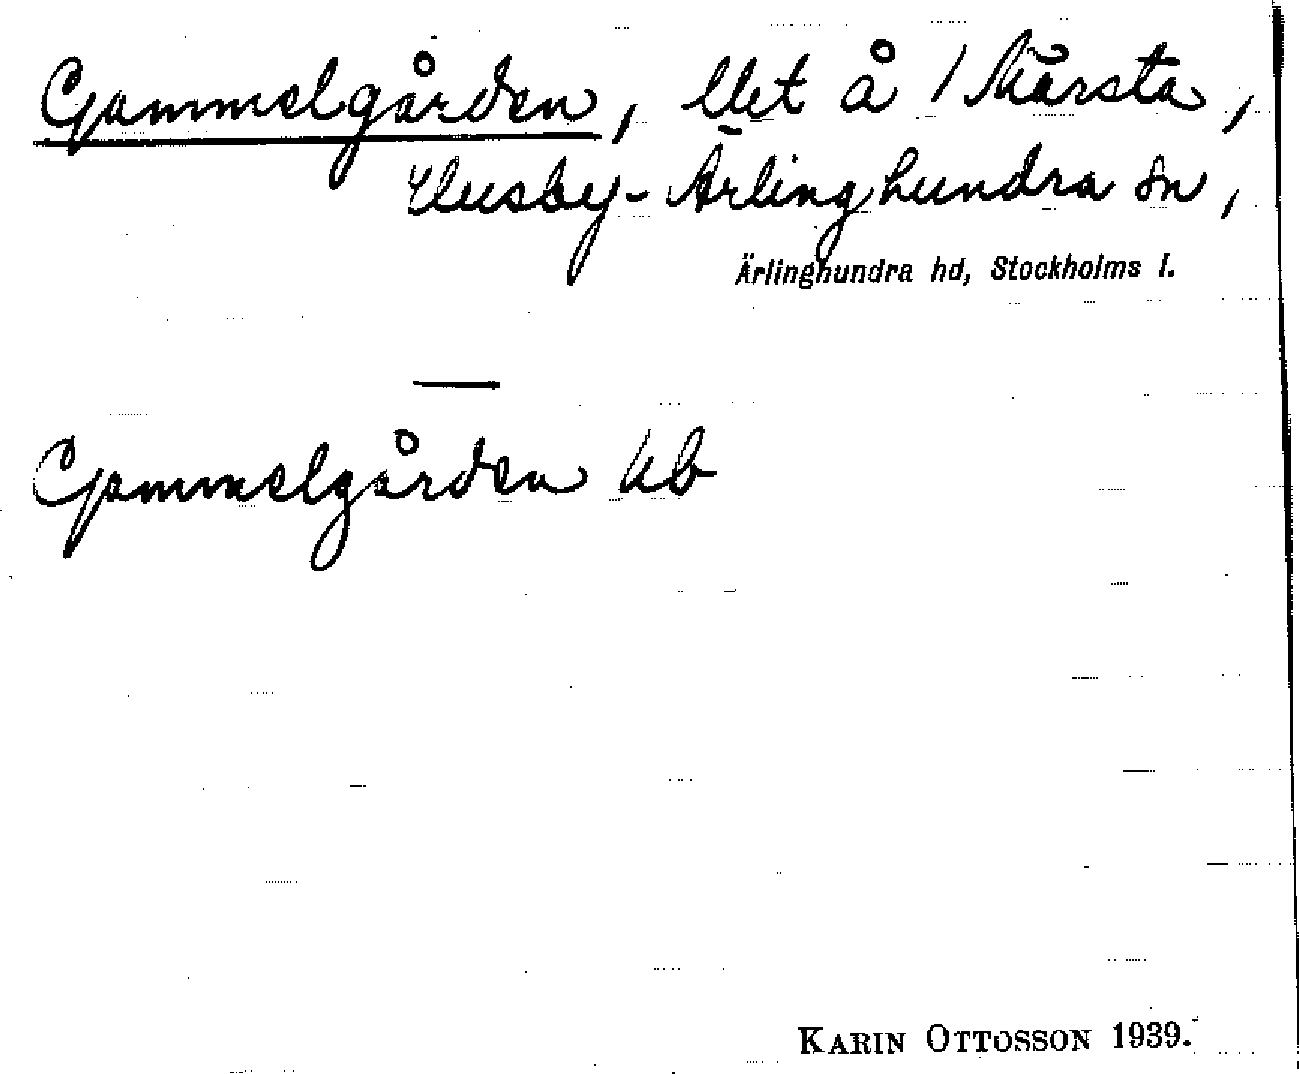 Gammelgården, lht å 1 Märsta,
Husby-Ärlinghundra sn,
Ärlinghundra hd, Stockholms l.
Gammelgården
KARIN OTTOSSON 1939.